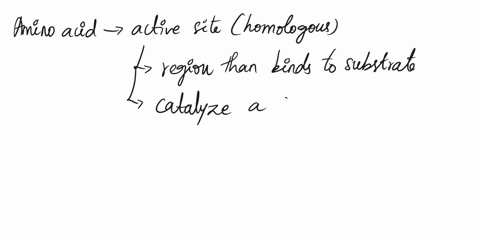 Amino acid → active site (homologous)
→ region than binds to substrate
→ catalyze a